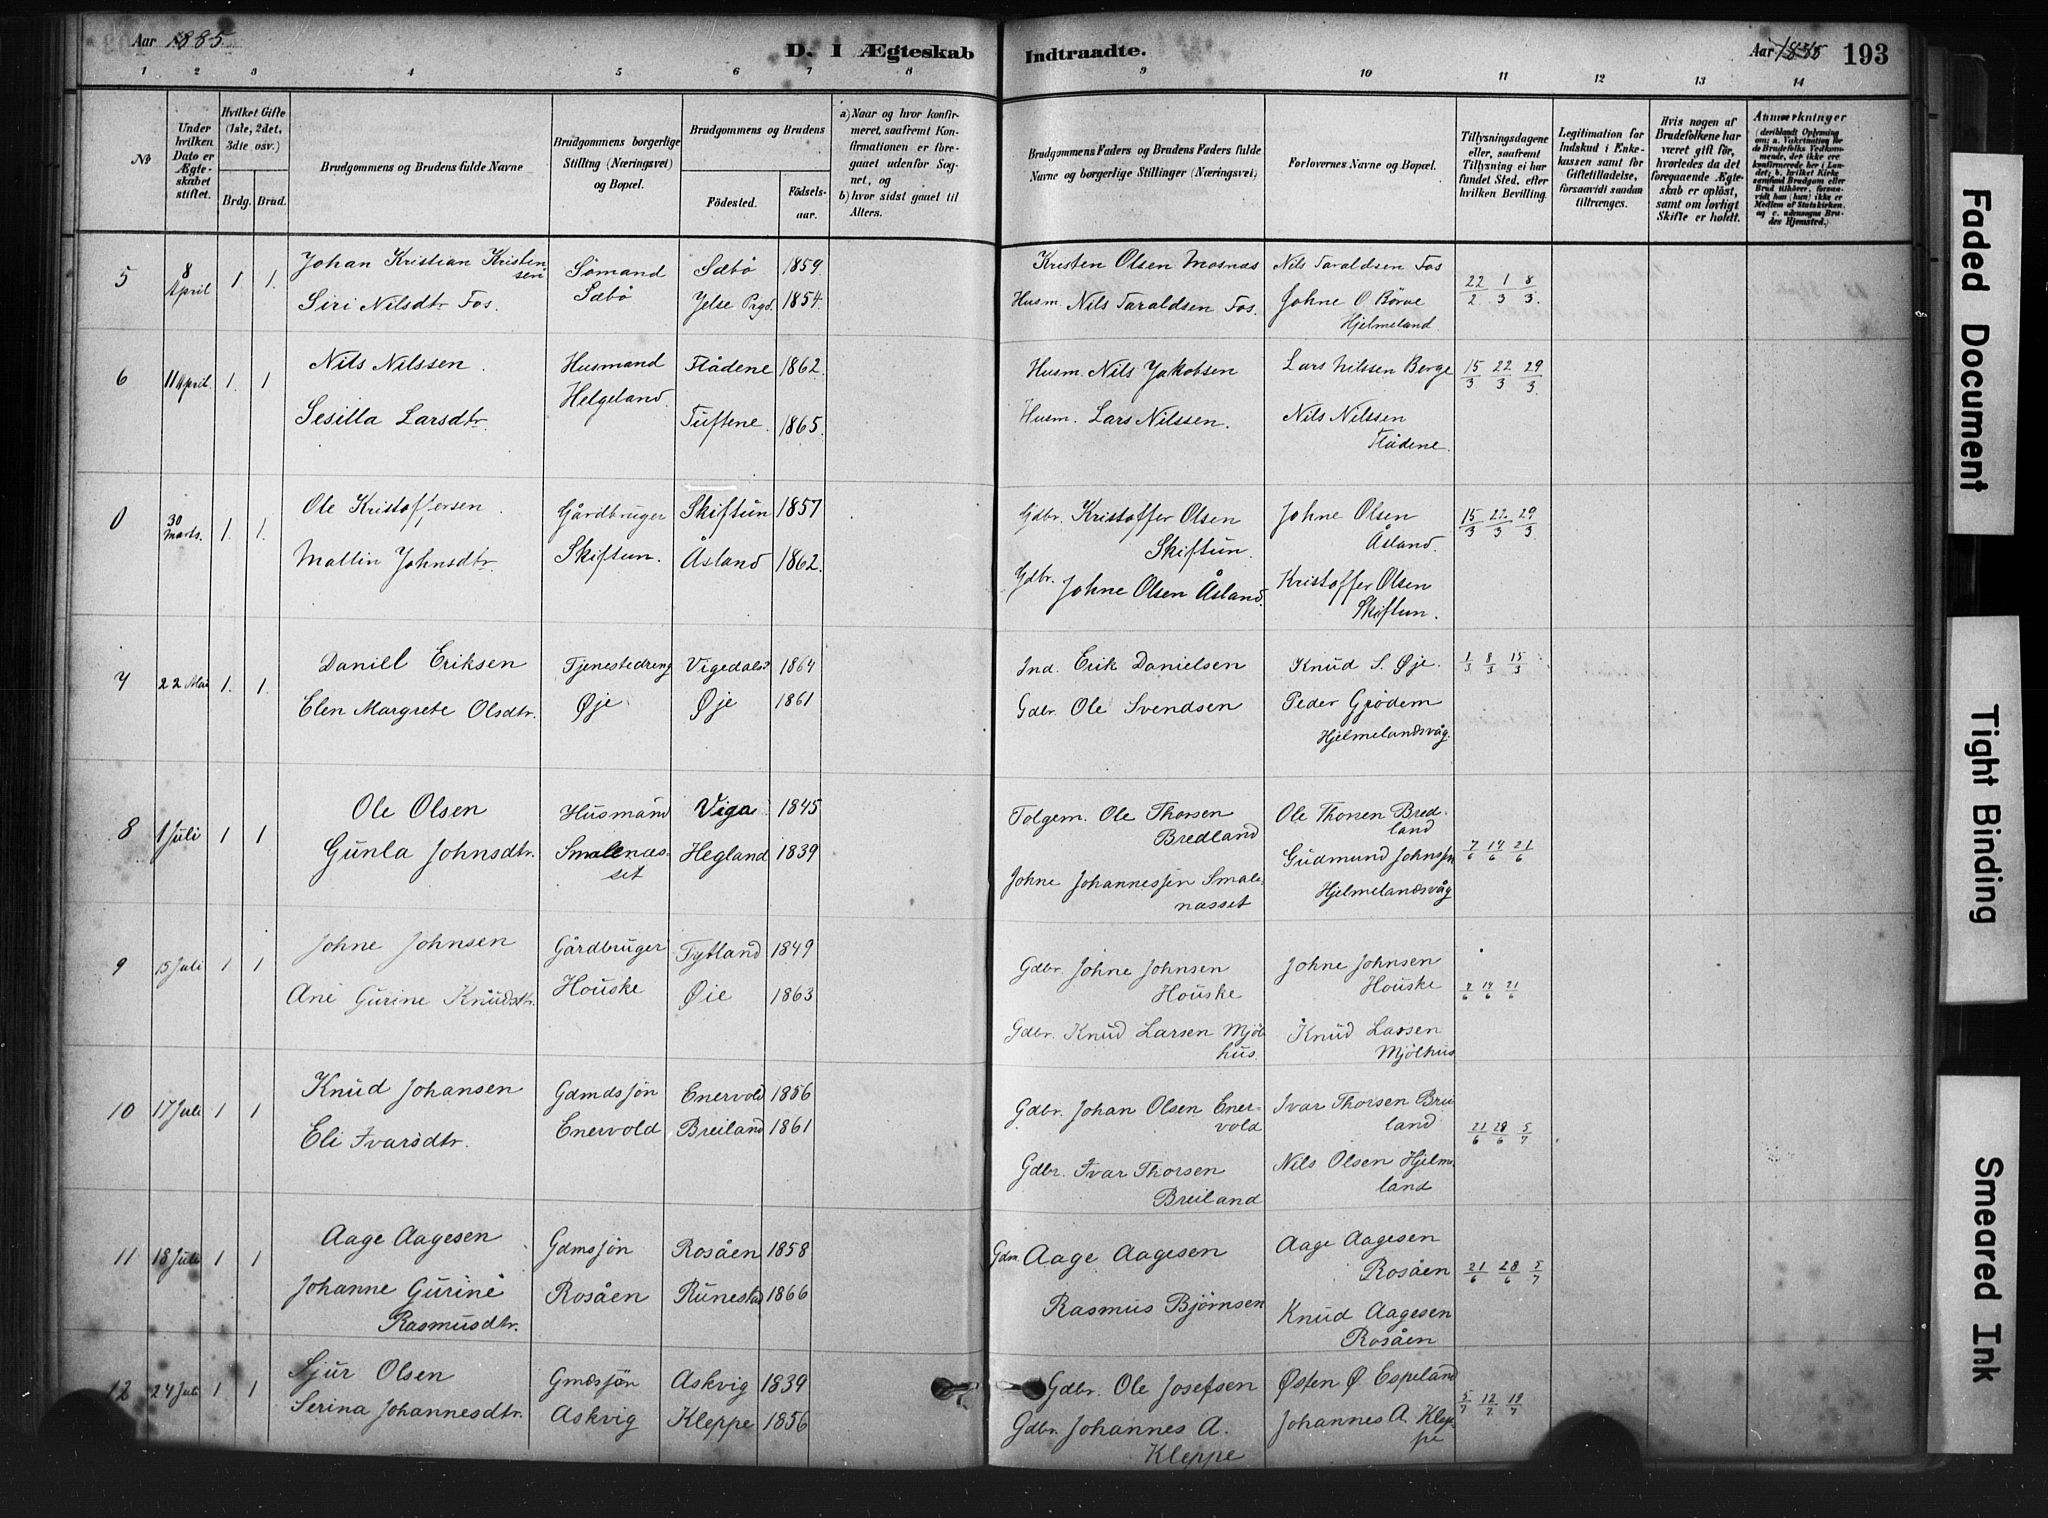 Aar 1885
D. I Ægteskab Indtraadte.
Aar 1885 193
1 2 3 4 5 6 7 8 9 10 11 12 13 14
No
Under hvilken Dato er Ægteskabet stiftet.
Hvilket Gifte (1ste, 2det, 3die osv.)
Brdg. Brud.
Brudgommens og Brudens fulde Navne
Brudgommens borgerlige Stilling (Næringsvei) og Bopæl.
Brudgommens og Brudens
Fødested.
Fødselsaar.
a) Naar og hvor konfirmeret, saafremt Konfirmationen er foregaaet udenfor Sognet, og
b) hvor sidst gaaet til Alters.
Brudgommens Faders og Brudens Faders fulde Navne og borgerlige Stillinger (Næringsvei)
Forlovernes Navne og Bopæl.
Tillysningsdagene eller, saafremt Tillysning ei har fundet Sted, efter hvilken Bevilling.
Legitimation for Indskud i Enkekassen samt for Giftetilladelse, forsaavidt saadan tiltrænges.
Hvis nogen af Brudefolkene har været gift før, hvorledes da det foregaaende Ægteskab er opløst, samt om lovligt Skifte er holdt.
Anmærkninger
(deriblandt Oplysning om: a. Vakcination for de Brudefolks Vedkommende, der ikke ere konfirmerede her i Landet; b. hvilket Kirkesamfund Brudgom eller Brud tilhører, forsaavidt han (hun) ikke er Medlem af Statskirken, og c. udensogns Brudes Hjemsted.)
5 8 April 1 1. Johan Kristian Kristensen Sömand Sæbö 1859 Kristen Olsen Mosnæs Nils Taraldsen Fos 22/2 1/3 8/3.
Siri Nilsdtr Fos. Sæbö Jelse Prgd. 1854. Husm. Nils Taraldsen Fos. Johne O. Börve
Hjelmeland
6 11 April. 1. 1 Nils Nilssen Husmand Flådene 1862. Husm. Nils Jakobsen Lars Nilssen Berge 15/3 22/3 29/3.
Sesilla Larsdtr. Helgeland. Tuftene. 1865. Husm. Lars Nilssen. Nils Nilssen
Flådene.
0 30 Marts. 1. 1. Ole Kristoffersen Gårdbruger Skiftun 1857 Gdbr. Kristoffer Olsen Johne Olsen 15/3 22/3 29/3
Skiftun. Åsland.
Mallin Johnsdtr. Skiftun. Åsland 1862. Gdbr. Johne Olsen Åsland. Kristoffer Olsen
Skiftun.
7 22 Mai 1. 1. Daniel Eriksen Tjenestedreng Vigedal 1864 Ind. Erik Danielsen Knud S. Øje. 1/3 8/3 15/3
Elen Margrete Olsdtr. Øje Øje 1861 Gdbr. Ole Svendsen Peder Grödem
Hjelmelandsvåg.
8 1 Juli 1 1 Ole Olsen Husmand Viga 1845 Folgem. Ole Thorsen Ole Thorsen Bred-
Bredland land
Gunla Johnsdtr. Smalenas- Hegland 1839 Gudmund Johnsen 7/6 14/6 21/6
set Johne Johannessen Smale- Hjelmelandsvåg
nasset
9 15 Juli 1 1 Johne Johnsen Gårdbruger Tytland 1849 Gdbr. Johne Johnsen Johne Johnsen
Ane Gurine Knudsdtr. Houske Øie 1863 Houske Houske 7/6 14/6 21/6
Gdbr. Knud Larsen Mjöl- Knud Larsen
hus. Mjölhus
10 17 Juli 1 1 Knud Johansen Gdmdssøn Enervold 1856 Gdbr. Johan Olsen Ener- Ivar Thorsen Brei-
vold land
Eli Ivarsdtr. Enervold Breiland 1861 21/6 28/6 5/7
Gdbr. Ivar Thorsen Nils Olsen Hjelm-
Breiland land
11 18 Juli 1 1 Aage Aagesen Gdmssøn Rosåen 1858 Gdm. Aage Aagesen Aage Aagesen
Rosåen 21/6 28/6 5/7
Johanne Gurine Rosåen Runestad 1866 Rasmus Bjørnsen Knud Aagesen
Rasmusdtr. Rosåen
12 24 Juli 1 1 Sjur Olsen Gmdssøn Askvig 1839 Gdbr. Ole Josefsen Østen Ø. Espeland
Serina Johannesdtr. Askvig Kleppe 1856 Gdbr. Johannes A. Johannes A. Klep- 5/7 12/7 19/7
Kleppe pe
Faded Document
Tight Binding
Smeared Ink